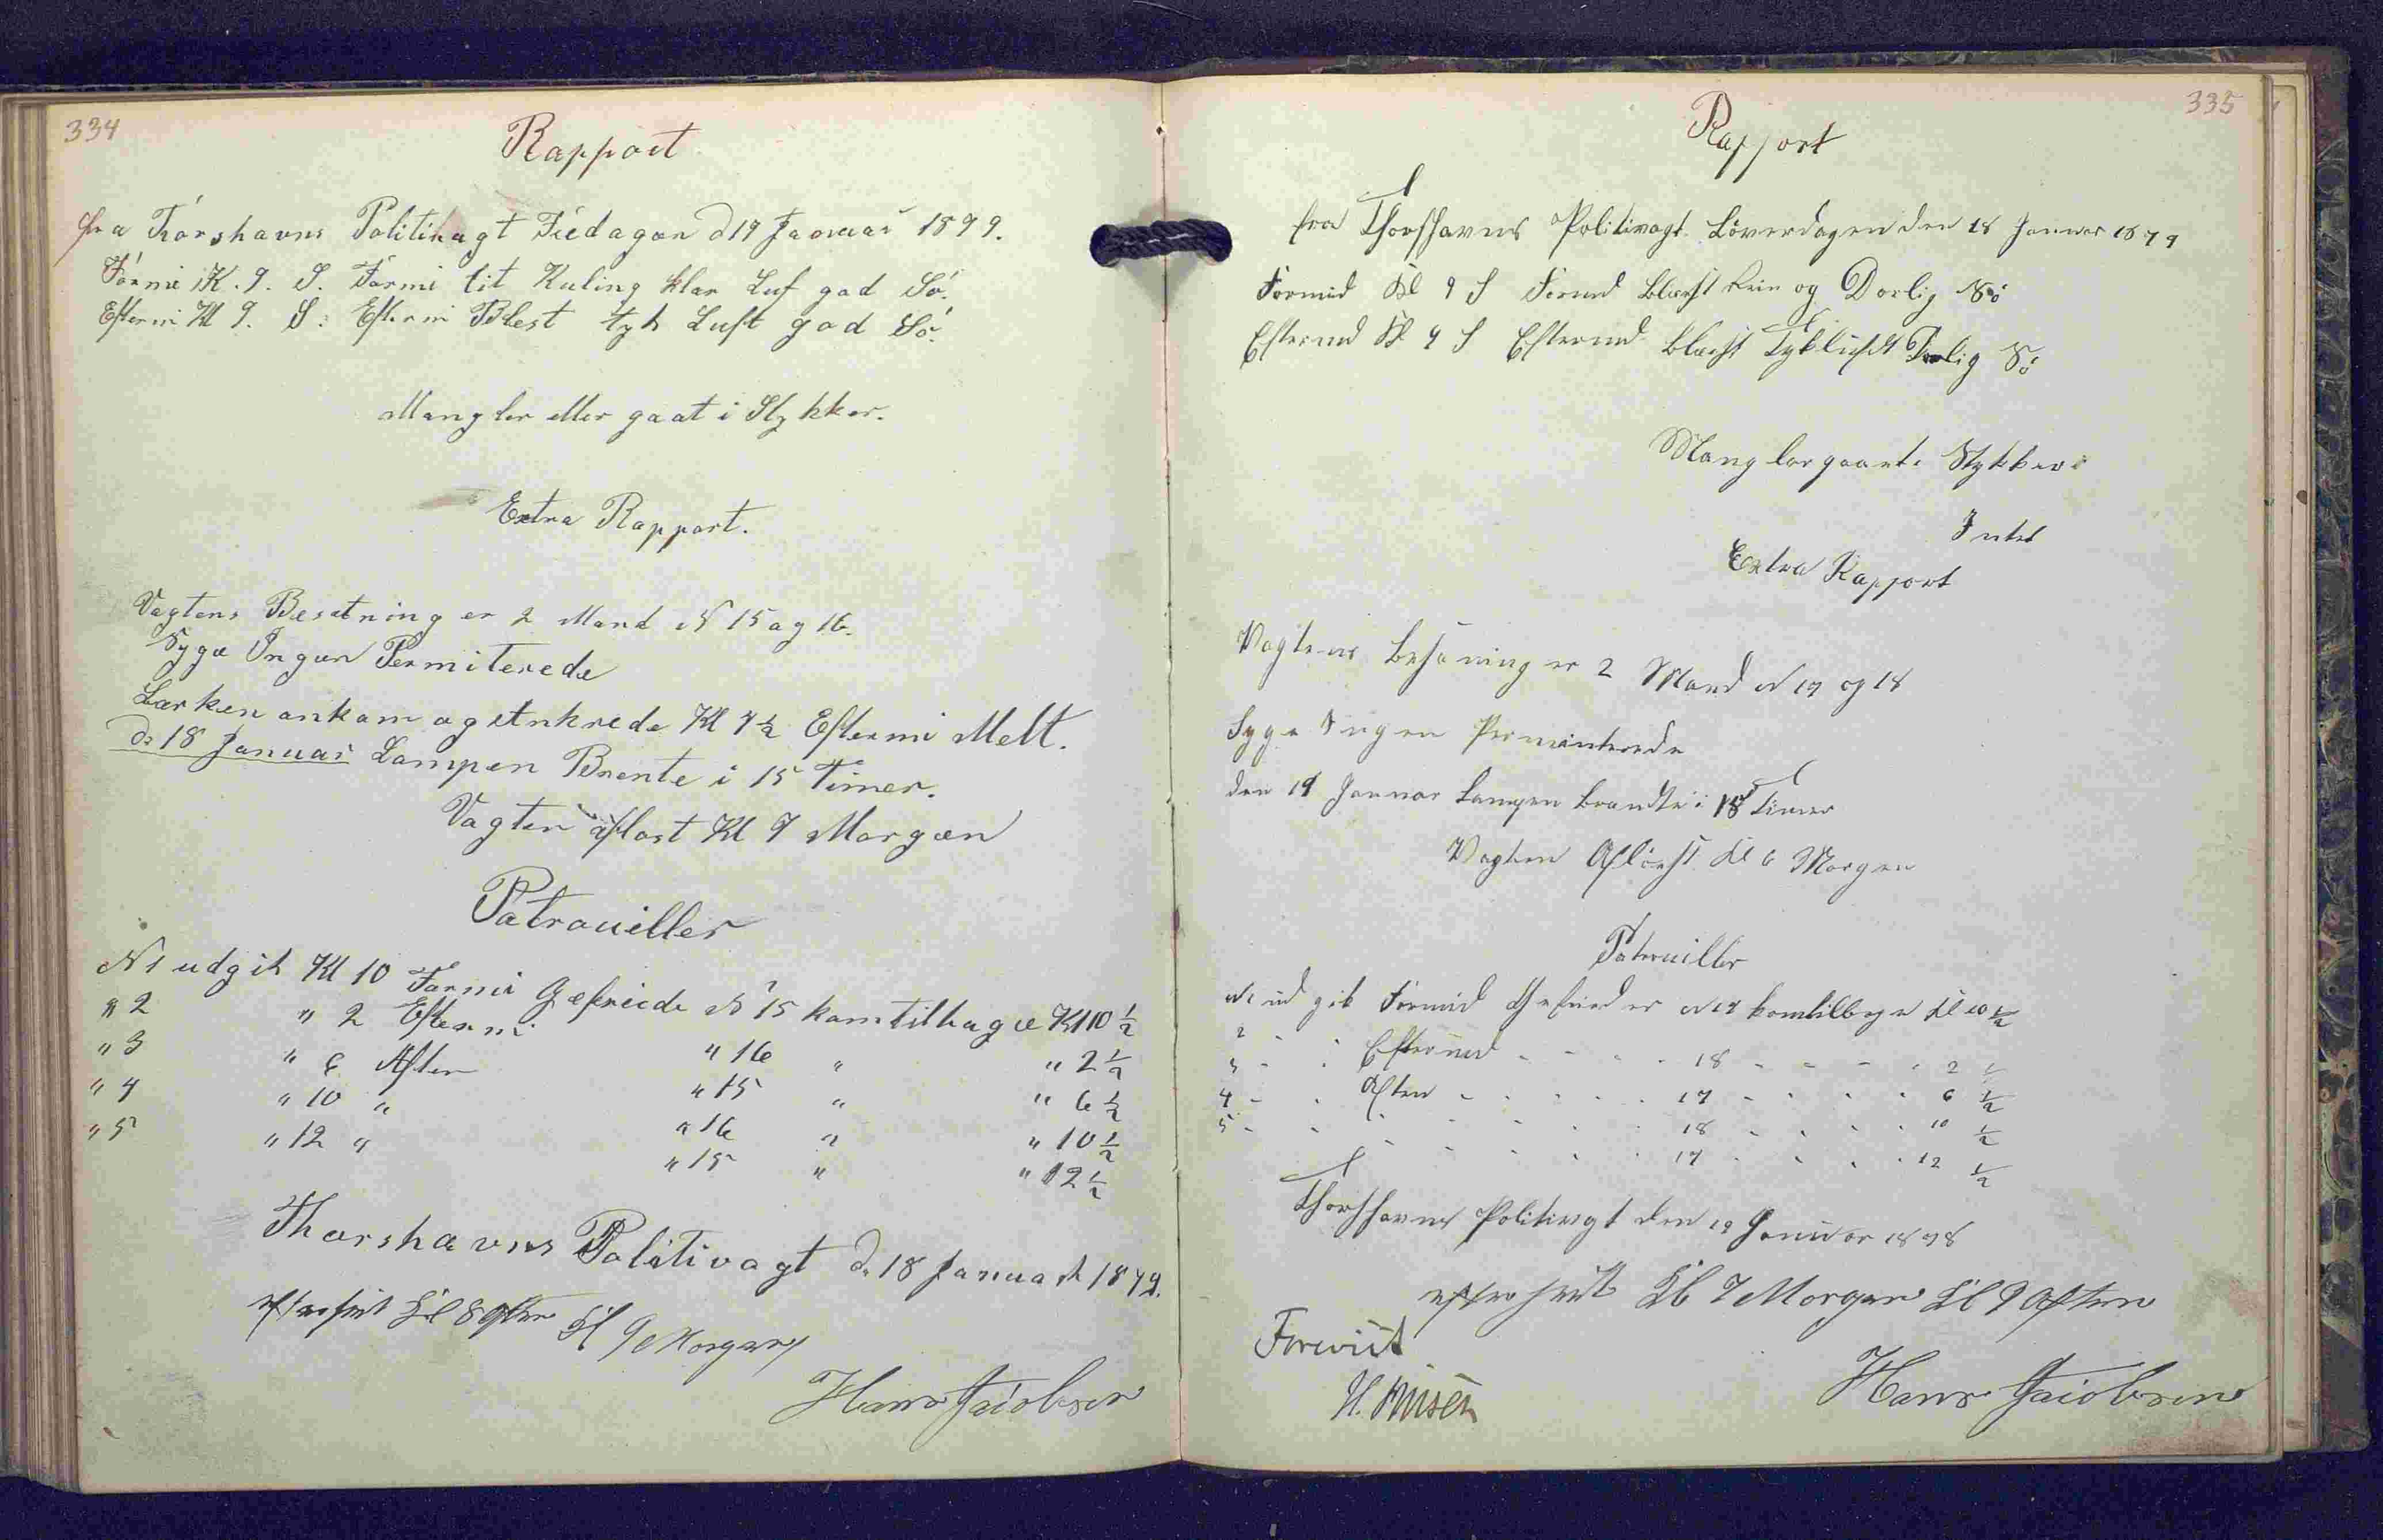 334
Rapport
fra Torshavns Politivagt Fredagen d 17 Januar 1879.
Formi K. 9. S. Formi lit Kuling klar Luf god Sö.
Eftermi Kl 9. S. Eftermi Blest tyk Luft god Sö.
Mangler eller gaat i Stykker.
Extra Rapport.
Vagtens Besatning er 2 Mand N 15 og 16.
Syge Ingen Permiterede
Lærken ankom og Ankrede Kl 7½ Eftermi Melt.
d. 18 Januar Lampen Brente i 15 Timer.
Vagten aflöst Kl 9 Morgen
Patrouiller
N 1 udgik Kl 10 Formi Gefreide N 15 kom tilbage Kl 10 ½
" 2 " 2 Eftermi " 16 " " 2 ½
" 3 " 6 Aften " 15 " " 6 ½
" 4 " 10 " " 16 " " 10 ½
" 5 " 12 " " 15 " " 12 ½
Thorshavns Politivagt d. 18 Januar 1879.
efterseet Kl 8 Aften Kl 9 Morgen
Hans Jacobsen
335
Rapport
fra Thorshavns Politivagt Löverdagen den 18 Januar 1879
Formid Kl 9 S Formd Blæst Rein og Dorlig Sö
Eftermd Kl 9 S Eftermd Blæst Tyk luft Dorlig Sö
Mangler gaaet i Stykker
Intet
Extra Rapport
Vagtens Besäning er 2 Mand N 17 og 18
Syge Ingen Permenterede
den 19 Januar Lampen brandte i 15 Timer
Vagten Aflöst Kl 6 Morgen
Patrouiller
N 1 ud gik Formid Gefreider N 17 kom tilbage Kl 10 ½
2 - - Eftermd - - - - 18 - - - - 2 ½
3 - - Aften - - - - 17 - - - - 6 ½
4 - - - - - - - 18 - - - - 10 ½
5 - - - - - - - 17 - - - - 12 ½
Thorshavns Politivagt den 19 Januar 1878
efterseet Kl 7 Morgen Kl 9 Aften
Foreviist
Hans Jacobsen
H.